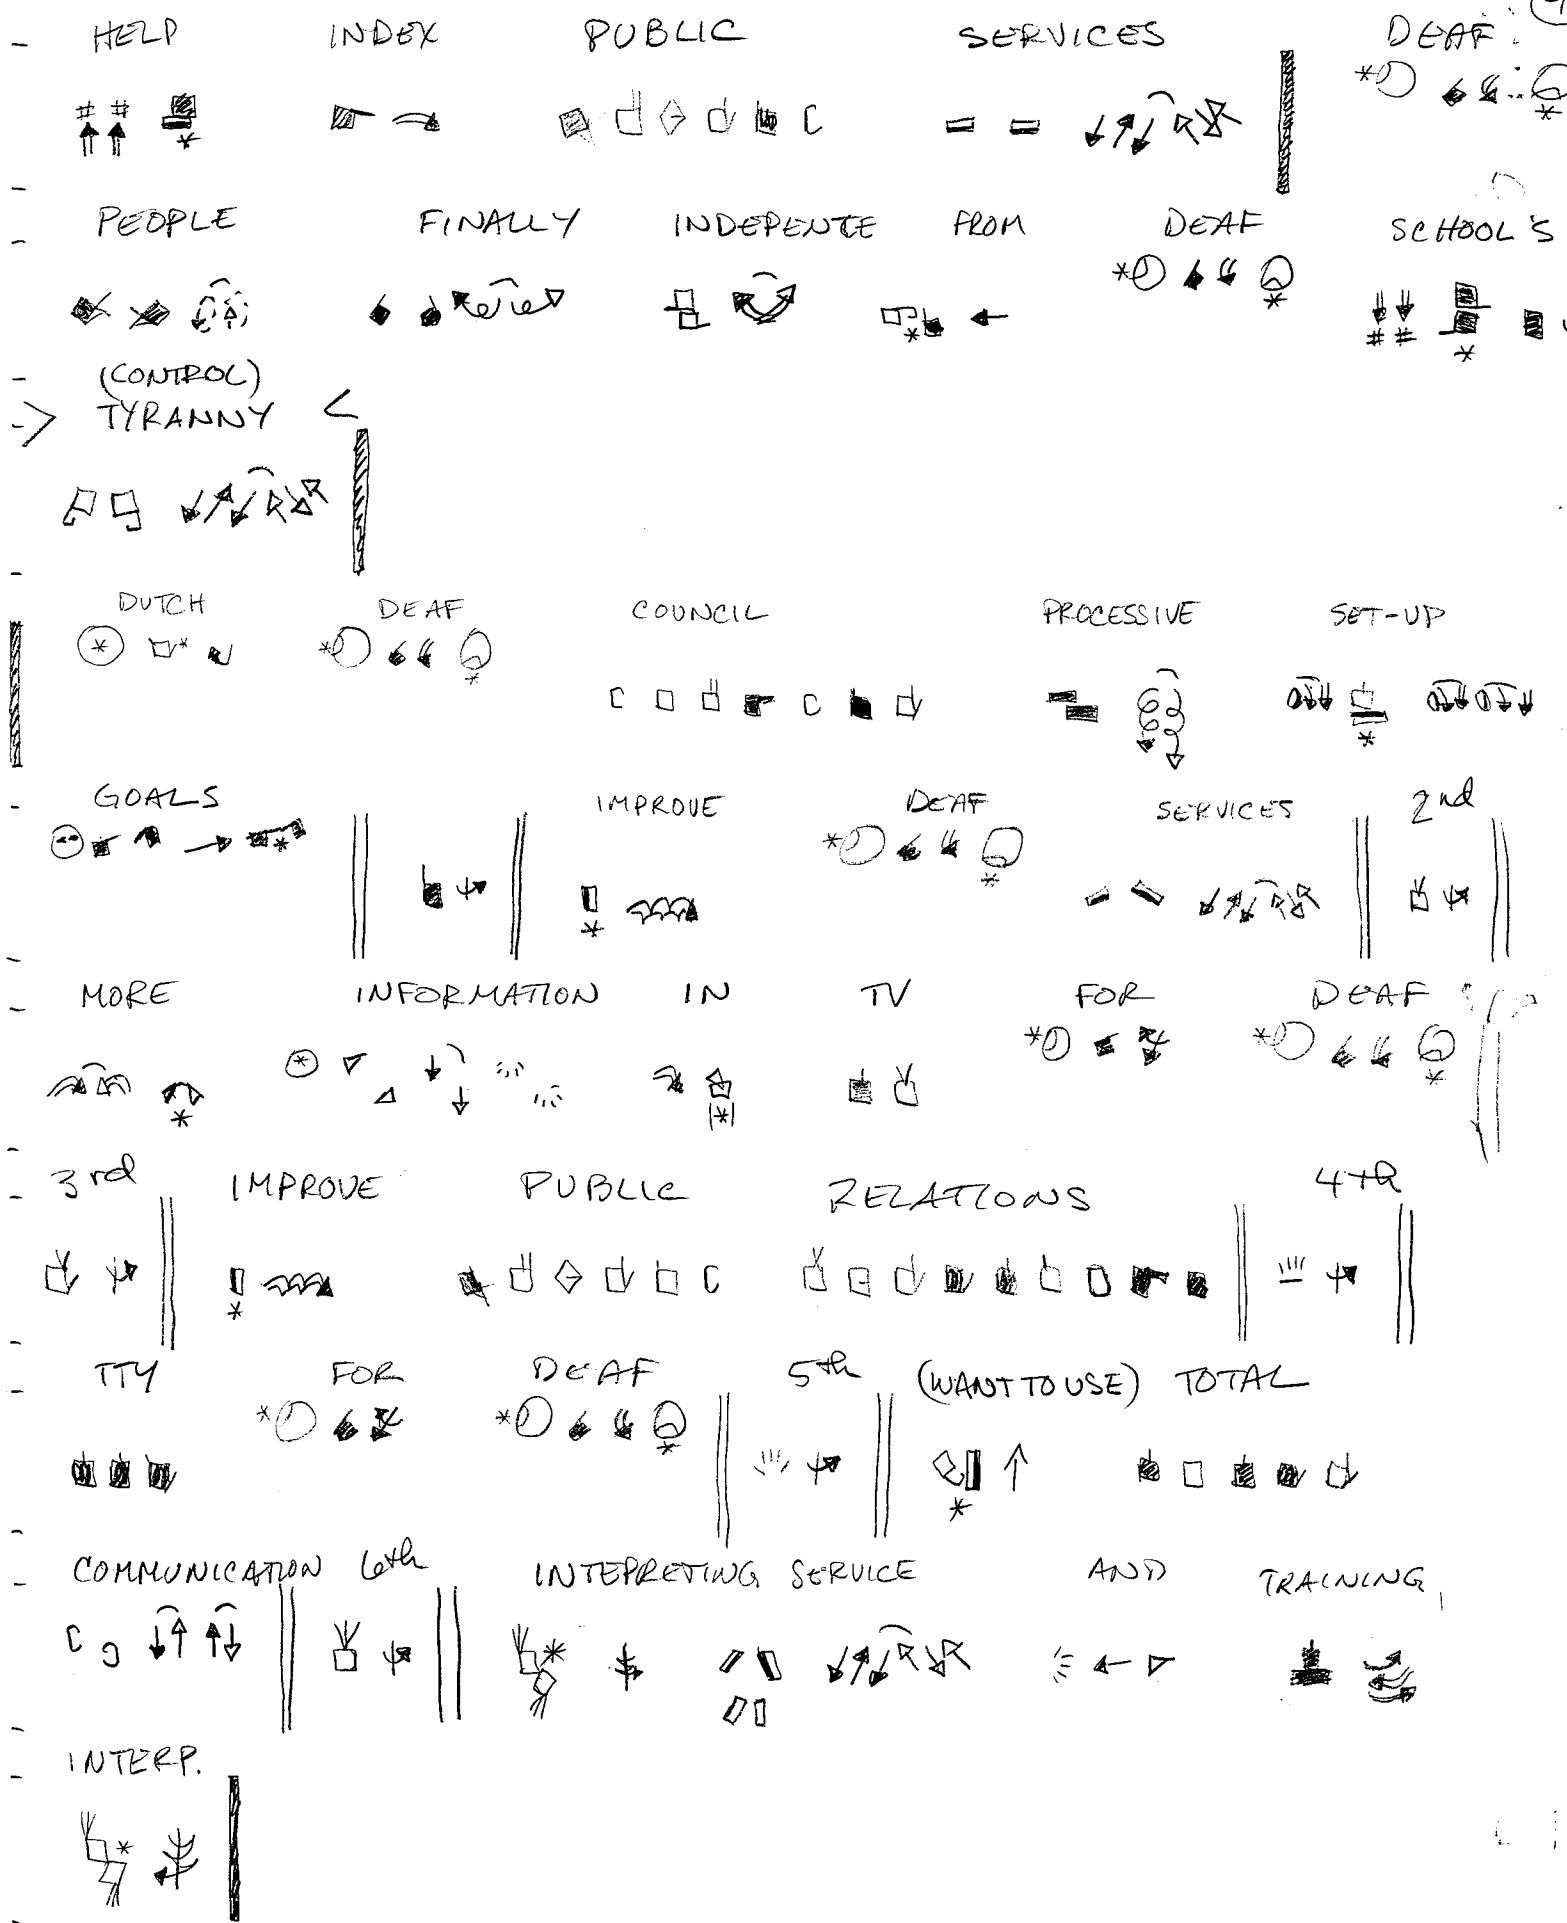 HELP INDEX PUBLIC SERVICES DEAF
PEOPLE FINALLY INDEPENTE FROM DEAF SCHOOL'S
(CONTROL)
> TYRANNY <
DUTCH DEAF COUNCIL PROCESSIVE SET-UP
GOALS IMPROVE DEAF SERVICES 2nd
MORE INFORMATION IN TV FOR DEAF
3rd IMPROVE PUBLIC RELATIONS 4th
TTY FOR DEAF 5th (WANT TO USE) TOTAL
COMMUNICATION 6th INTEPRETING SERVICE AND TRAINING
INTERP.